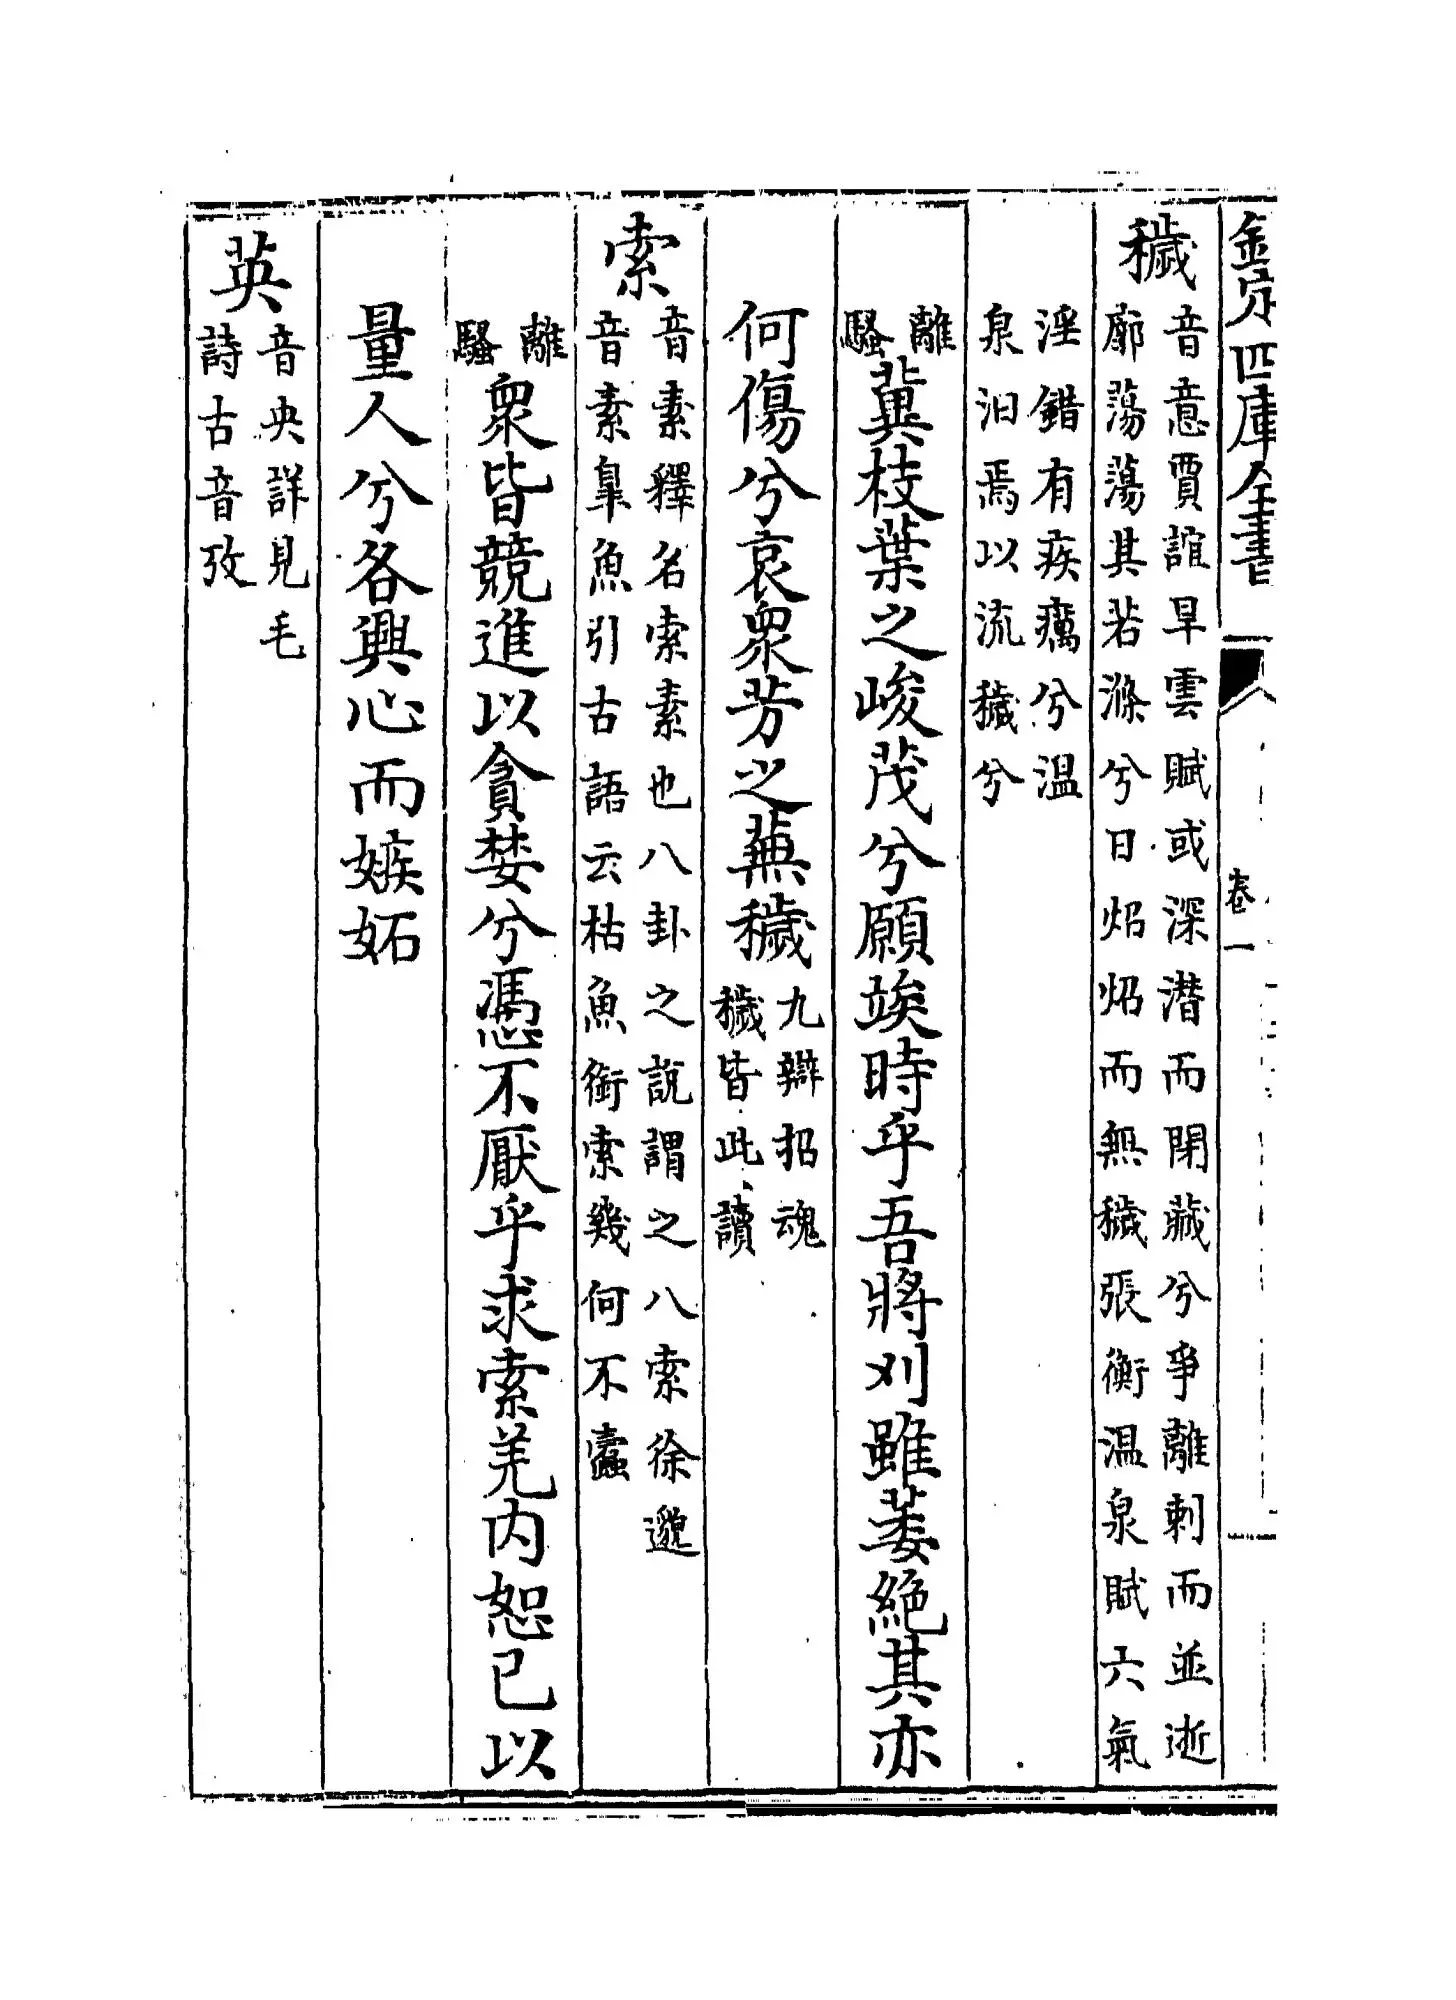 欽定四庫全書
卷一
穢
音意賈誼旱雲賦或深潜而閉藏兮爭離刺而並逝
廓蕩蕩其若滌兮日炤炤而無穢張衡温泉賦六氣
淫錯有疾癘兮温
泉汩焉以流穢兮
離騷冀枝葉之峻茂兮願竢時乎吾將刈雖萎絶其亦
何傷兮哀衆芳之蕪穢
九辯招魂
穢皆此讀
索
音素釋名索素也八卦之說謂之八索徐邈
音素臯魚引古語云枯魚銜索幾何不蠹
離騷衆皆競進以貪婪兮憑不厭乎求索羌内恕己以
量人兮各興心而嫉妬
英
音央詳見毛
詩古音攷